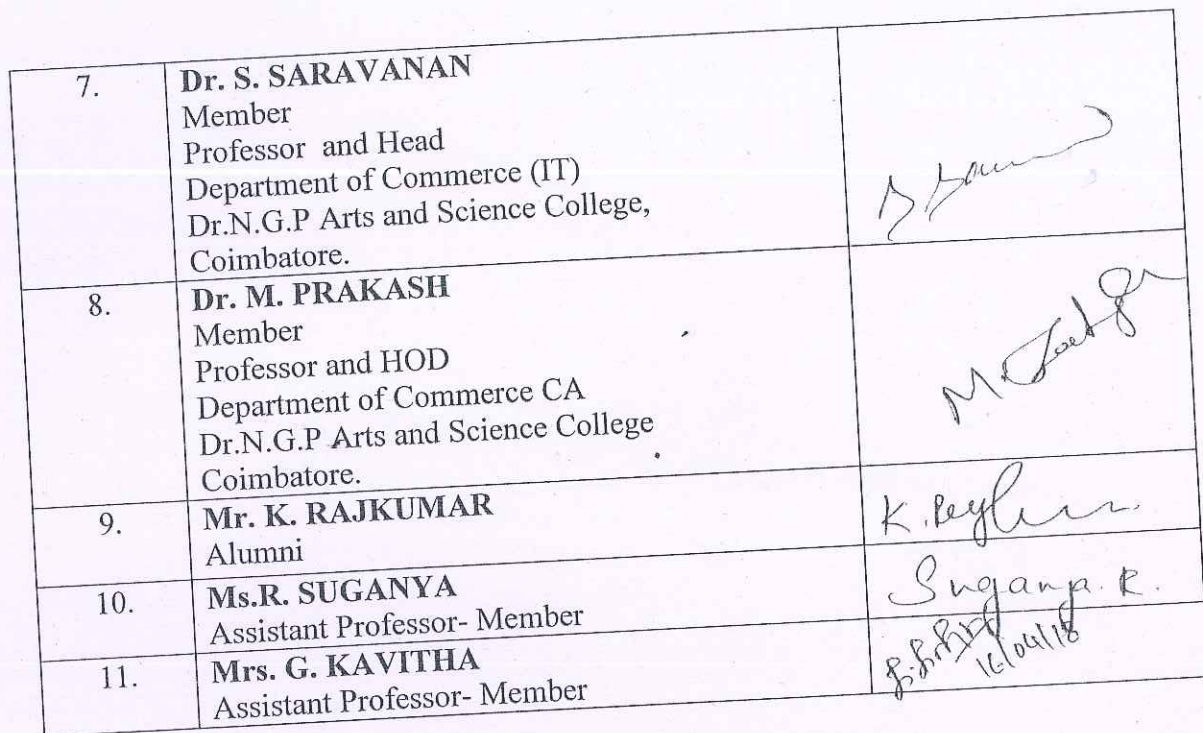 7.
Dr. S. SARAVANAN
Member
Professor and Head
Department of Commerce (IT)
Dr.N.G.P Arts and Science College,
Coimbatore.
8.
Dr. M. PRAKASH
Member
Professor and HOD
Department of Commerce CA
Dr.N.G.P Arts and Science College
Coimbatore.
M.
9.
Mr. K. RAJKUMAR
Alumni
K.
10.
Ms.R. SUGANYA
Assistant Professor- Member
Suganya. R.
11.
Mrs. G. KAVITHA
Assistant Professor- Member
16/04/18